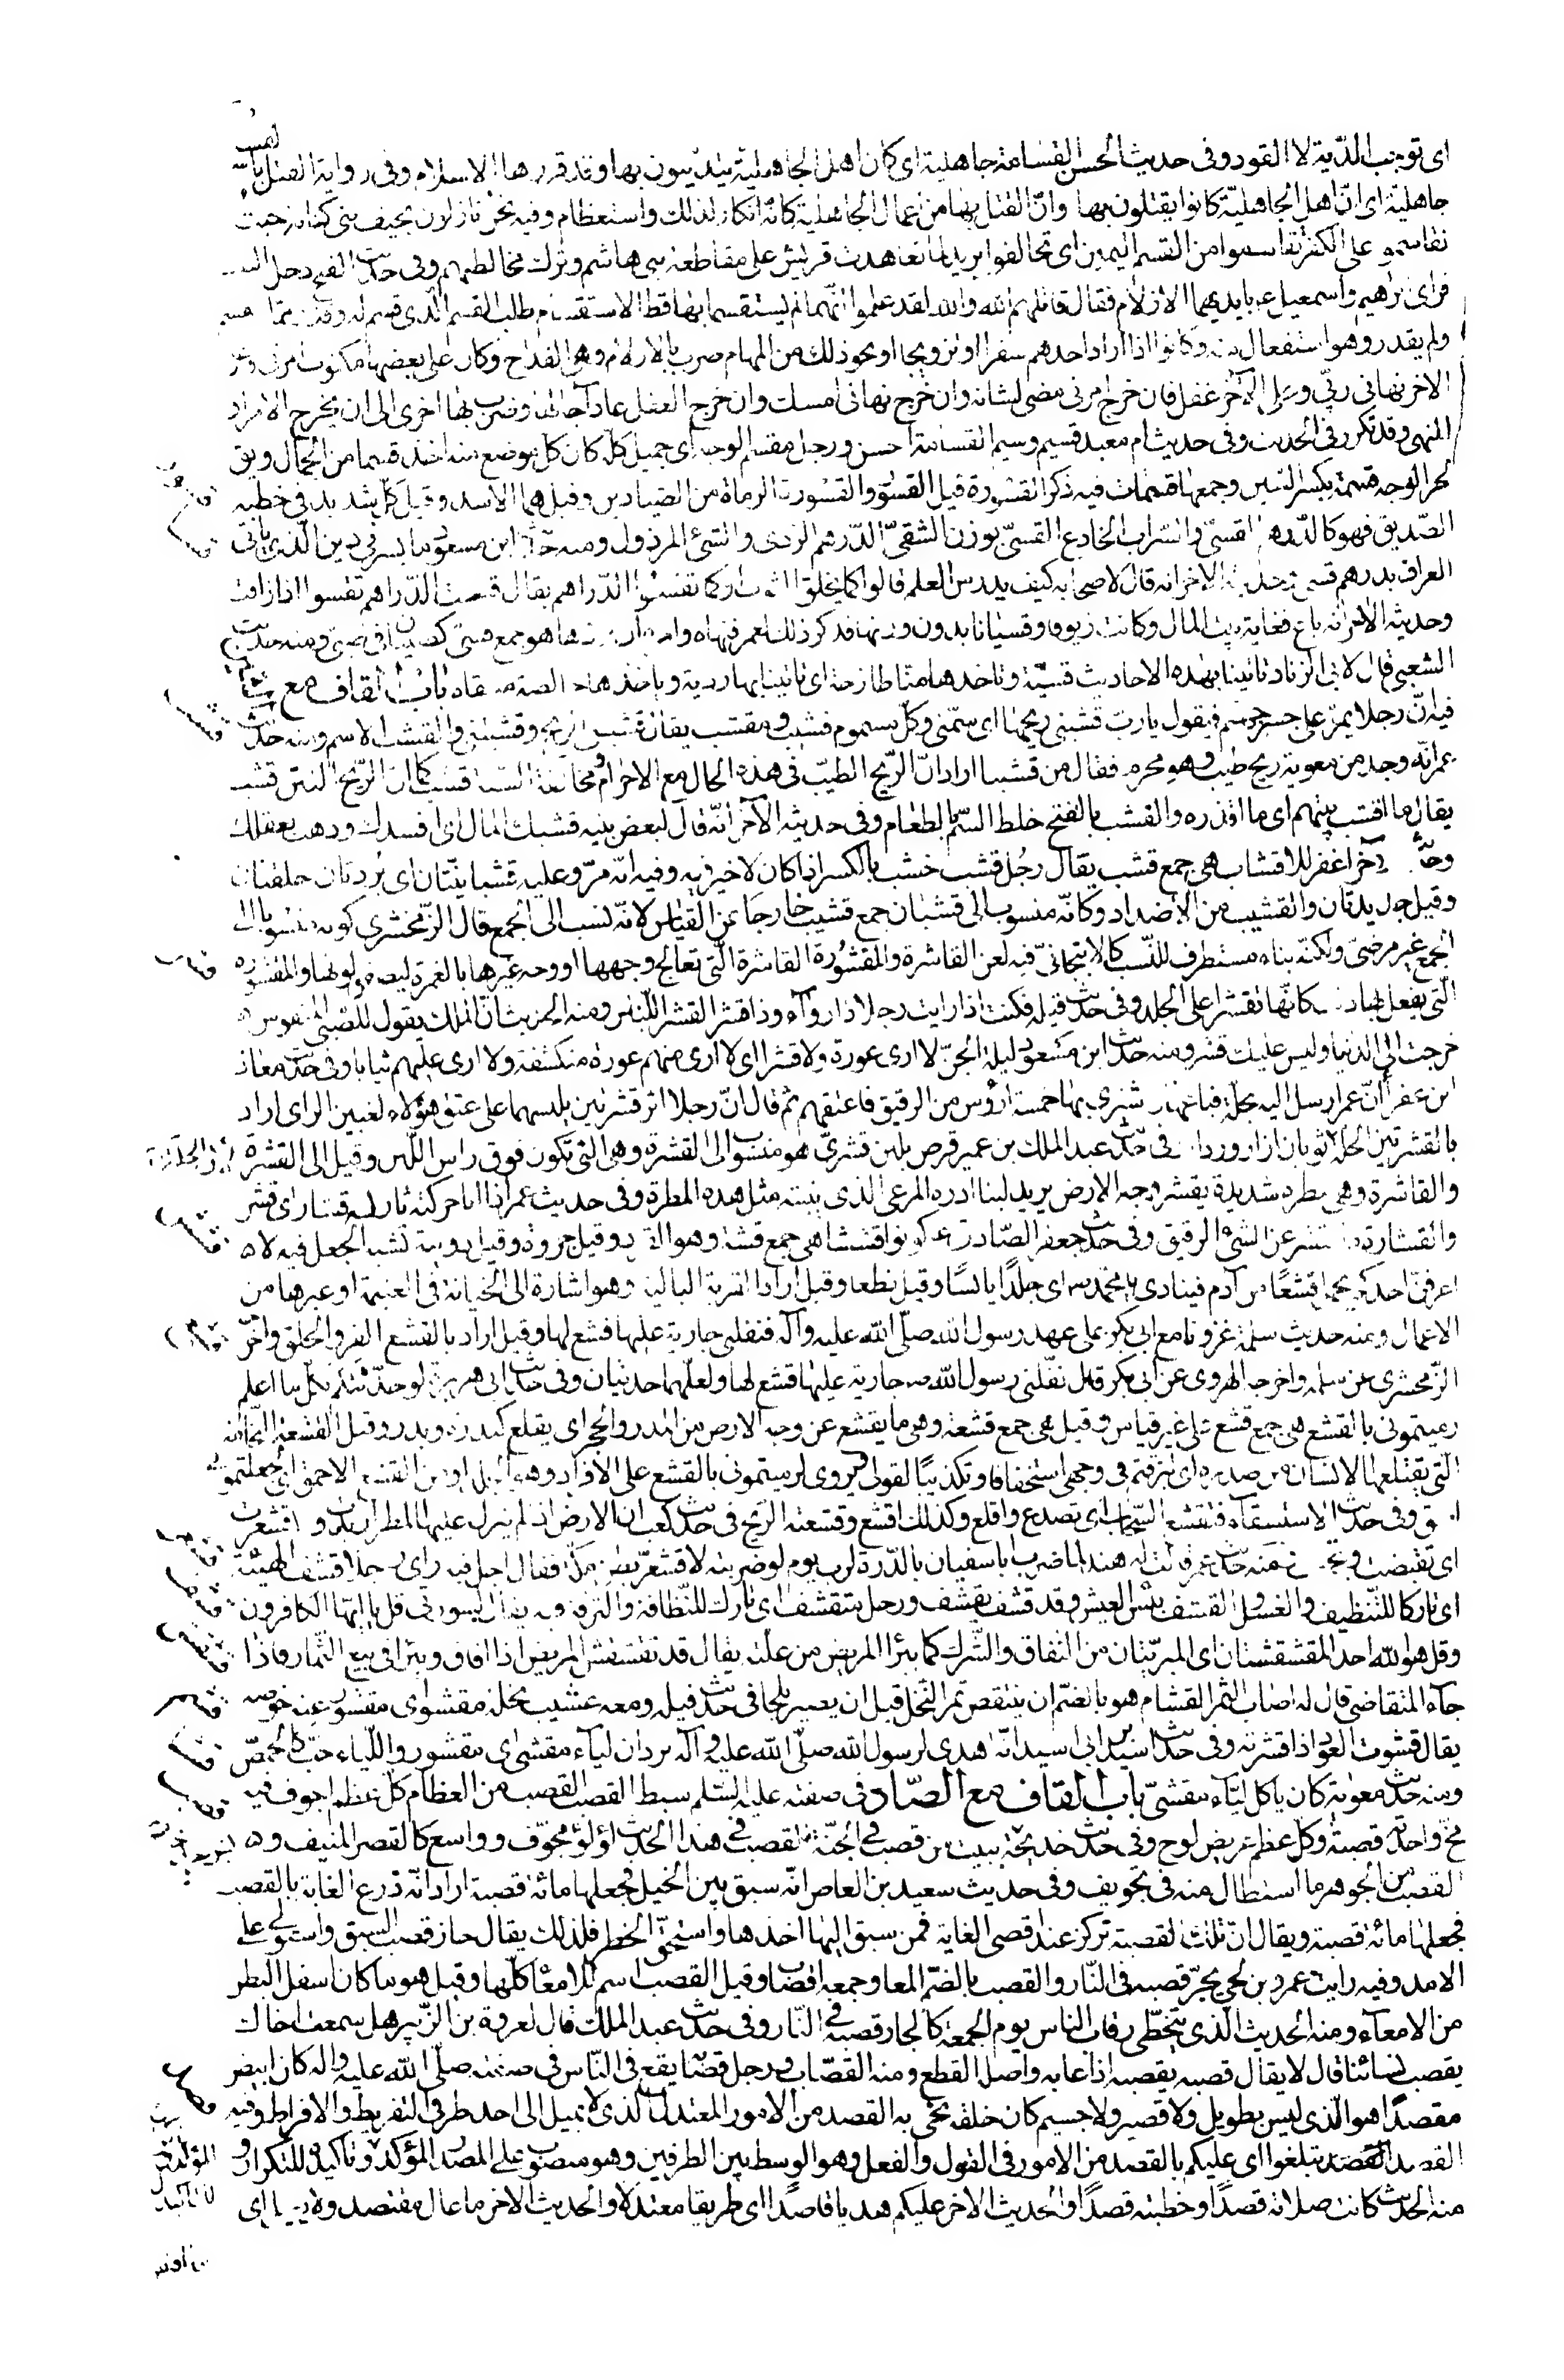 اى توجب الدّية لا القود وفى حديث الحسن القسامة جاهلية اى كان اهل الجاهلية يتديّنون بها وقد قررها الاسلام وفى رواية القتل بالقسامة
جاهليّة اى انّ اهل الجاهليّة كانوا يقتلون بها وانّ القتل بها من اعمال الجاهلية كانّه انكار لذلك واستعظام وفيه نحن نازلون بخيف بنى كنانة حيث
تقاسموا على الكفر تقاسموا من القسم اليمين اى تحالفوا يريد لما تعاهدت قريش على مقاطعة بنى هاشم وترك مخالطتهم وفى حديث الفتح دخل البيت
فراى ابراهيم واسمعيل ع بايديهما الازلام فقال قاتلهم الله والله لقد علموا انّهما لم يستقسما بها قط الاستقسام طلب القسم الّذى قسم له وقدّر ممّا لم يقسم
ولم يقدر وهو استفعال منه وكانوا اذا اراد احدهم سفرا او تزويجا او نحو ذلك من المهام ضرب بالازلام وهى القداح وكان على بعضها مكتوب امرنى ربّى وعلى
الاخر نهانى ربّى وعلى الآخر غفل فان خرج امرنى مضى لشانه وان خرج نهانى امسك وان خرج الغفل عاد اجالها وضرب بها اخرى الى ان يخرج الامر او
النهى وقد تكرر فى الحديث وفى حديث ام معبد قسيم وسيم القسامة الحسن ورجل مقسم الوجه اى جميل كلّه كان كل موضع منه اخذ قسما من الجمال ويق
لحر الوجه قسمة بكسر السّين وجمعها قسمات فيه ذكر القسورة قيل القسور والقسورة الرماة من الصّيادين وقيل هما الاسد وقيل كلّ شديد فى خطبة
الصّديق فهو كالدّرهم القسىّ والسّراب الخادع القسىّ بوزن الشّقىّ الدّرهم الردى والشّئ المرذول ومنه حديث ابن مسعود ما يسرنى دين الّذى ياتى
العراف بدرهم قسى وحديثه الاخر انه قال لاصحابه كيف يدرس العلم قالوا كما يخلق الثوب او كما تقسوا الدّراهم يقال قست الدّراهم تقسوا اذا زافت
وحديثه الاخر انّه باع نفاية بيت المال وكانت زيوفا وقسيانا بدون وزنها فذكر ذلك لعمر فنهاه وامره ان يردها هو جمع قسىّ كصبيان فى صبىّ ومنه حديث
الشعبى قال لابى الزناد تاتينا بهذه الاحاديث قسيّة وتاخذها منّا طازجة اى تاتينا بها رديّة وتاخذها خالصة منتقاة باب القاف مع الشّين
فيه انّ رجلا يمرّ على جسر جهنّم فيقول يا ربّ قشبنى ريحها اى سمّنى وكلّ مسموم قشيب ومقشب يقال قشبنى الرّيح وقشّبتنى والقشب الاسم ومنه حديث
عمر انّه وجد من معوية ريح طيب وهو محرم فقال من قشبنا اراد انّ الرّيح الطيّب فى هذه الحال مع الاحرام ومخالفة السّنة قشب كما انّ الرّيح النتن قشب
يقال ما اقشب بيتهم اى ما اقذره والقشب بالفتح خلط السّمّ بالطعام وفى حديثه الآخر انّه قال لبعض بنيه قشبك المال اى افسدك وذهب بعقلك
وحديثه الآخر اغفر للاقشاب هى جمع قشب يقال رجُل قشب خشب بالكسر اذا كان لا خير فيه وفيه انّه مرّ وعليه قشبانيّتان اى بُردتان خلقتان
وقيل جديدتان والقشيب من الاضداد وكانّه منسوب الى قشبان جمع قشيب خارجا عن القياس لانّه نسب الى الجمع قال الزّمخشرى كونه منسوبا الى
الجمع غير مرضىّ ولكنّه بناء مستطرف للنّسب كالانبجانىّ فيه لعن القاشرة والمقشورة القاشرة الّتى تعالج وجهها او وجه غيرها بالغمرة ليصفو لونها والمقشورة
الّتى يفعل بها ذلك كانّها تقشر اعلى الجلد وفى حديث قيلة فكنت اذا رايت رجلا ذا رواء وذا قشر القشر اللّباس ومنه الحديث انّ الملك يقول للصّبىّ المنفوس
خرجت الى الدّنيا وليس عليك قشر ومنه حديث ابن مسعود ليلة الجنّ لا ارى عورة ولا قشرا اى لا ارى منهم عورة منكشفة ولا ارى عليهم ثيابا وفى حديث معاذ
ابن عفراء انّ عمر ارسل اليه بحلّة فباعها فاشترى بها خمسة ارؤس من الرقيق فاعتقهم ثم قال انّ رجلا اثر قشرتين يلبسهما على عتق هؤلاء لغبين الراى اراد
بالقشرتين الحلّة لانّها ثوبان ازار ورداء فى حديث عبد الملك بن عمير قرص بلبن قشرىّ هو منسوب الى القشرة وهى التى تكون فوق راس اللّبن وقيل الى القشرة
والقاشرة وهى مطرة شديدة يقشر وجه الارض يريد لبنا ادره المرعى الذى ينبته مثل هذه المطرة وفى حديث عمر اذا انا حركته ثار له قشار اى قشر
والقشارة ما يقشر عن الشّئ الرقيق وفى حديث جعفر الصّادق ع كونوا قششا هى جمع قشّة وهو القرد وقيل جروه وقيل دويبة تشبه الجعل فيه لا
اعرفنّ احدكم يحمل قشعًا من آدم فينادى يا محمّد اى جلدًا يابسًا وقيل نطعا وقيل اراد القربة البالية وهو اشارة الى الخيانة فى الغنيمة او غيرها من
الاعمال ومنه حديث سلمة غزونا مع ابى بكر على عهد رسول الله صلّى الله عليه وآله فنفلنى جارية عليها قشع لها وقيل اراد بالقشع الفرو الخلق واخرجه
الزّمخشرى عن سلمة واخرجه الهروى عن ابى بكر قال نفّلنى رسول الله ص جارية عليها قشع لها ولعلّهما حديثان وفى حديث ابى هريرة لو حدّثتكم بكلّ ما اعلم
رميتمونى بالقشع هى جمع قشع على غير قياس وقيل هى جمع قشعة وهى ما يقشع عن وجه الارض من المدر والحجر اى يقلع كبدرة وبدر وقيل القشعة النّخامة
التى يقتلعها الانسان من صدره اى لبزقتم فى وجهى استخفافا وتكذيبًا لقولى ويروى لرميتمونى بالقشع على الافراد وهو الجلد او من القشع الاحمق اى لجعلتمونى
احمق وفى حديث الاستسقاء فتقشّع السّحاب اى تصدع واقلع وكذلك اقشع وقشعته الرّيح فى حديث كعب ان الارض اذا لم ينزل عليها المطر اربدّت واقشعرّت
اى تقبضت وتجمّعت ومنه حديث عمر قالت له هند لمّا ضرب ابا سفيان بالدّرة لربّ يوم لو ضربته لاقشعرّ بطن مكّة فقال اجل فيه راى رجلا قشف الهيئة
اى تاركا للتّنظيف والغسل والقشف يبس العيش وقد قشف يقشف ورجل متقشّف اى تارك للنّظافة والترفه فيه يقال لسورتى قل يا ايّها الكافرون
وقل هو الله احد المقشقشتان اى المبرّئتان من النّفاق والشّرك كما يبرأ المريض من علّته يقال قد تقشقش المريض اذا افاق وبرأ فى بيع الثّمار فاذا
جاء المتقاضى قال له اصاب الثمر القشام هو بالضّم ان ينتقض ثمر النّخل قبل ان يصير بلحا فى حديث قيلة ومعه عسيّب نخلة مقشو اى مقشور عنه خوصه
يقال قشوت العود اذا قشرته وفى حديث اسيد بن ابى اسيد انّه اهدى لرسول الله صلّى الله عليه وآله بودان لياء مقشى اى مقشور واللّياء حبّ كالحمّص
ومنه حديث معوية كان ياكل لياء مقشىّ باب القاف مع الصّاد فى صفته عليه السّلم سبط القصب القصب من العظام كلّ عظم اجوف فيه
مخّ واحدته قصبة وكلّ عظم عريض لوح وفى حديث خديجة ببيت من قصب فى الجنّة القصب فى هذا الحديث لؤلؤ مجوّف وواسع كالقصر المنيف و
القصب من الجوهر ما استطال منه فى تجويف وفى حديث سعيد بن العاص انّه سبق بين الخيل فجعلها مائة قصبة اراد انّه ذرع الغاية بالقصب
فجعلها مائة قصبة ويقال انّ تلك القصبة تركز عند اقصى الغاية فمن سبق اليها اخذها واستحقّ الخطر فلذلك يقال حاز قصب السبق واستولى على
الامد وفيه رايت عمرو بن لحى يجرّ قصبه فى النّار والقصب بالضّم المعا وجمعه اقصاب وقيل القصب اسم للامعاء كلّها وقيل هو ما كان اسفل البطن
من الامعاء ومنه الحديث الّذى يتخطّى رقاب الناس يوم الجمعة كالجارّ قصبه فى النّار وفى حديث عبد الملك قال لعروة بن الزّبير هل سمعت اخاك
يقصب نسائنا قال لا يقال قصبه يقصبه اذا عابه واصل القطع ومنه القصّاب ورجل قصّابة يقع فى النّاس فى صفته صلّى الله عليه وآله كان ابيض
مقصدًا هو الّذى ليس بطويل ولا قصير ولا جسيم كان خلقه نحى به القصد من الامور المعتدل الّذى لا يميل الى احد طرفى التفريط والافراط وفيه
القصد القصد تبلغوا اى عليكم بالقصد من الامور فى القول والفعل وهو الوسط بين الطرفين وهو منصوب على المصدر المؤكّد وتاكيده للتّكرار و
منه الحديث كانت صلاته قصدًا وخطبته قصدًا والحديث الاخر عليكم هديا قاصدًا اى طريقا معتدلا والحديث الاخر ما عال مقتصد ولا يعيل اى